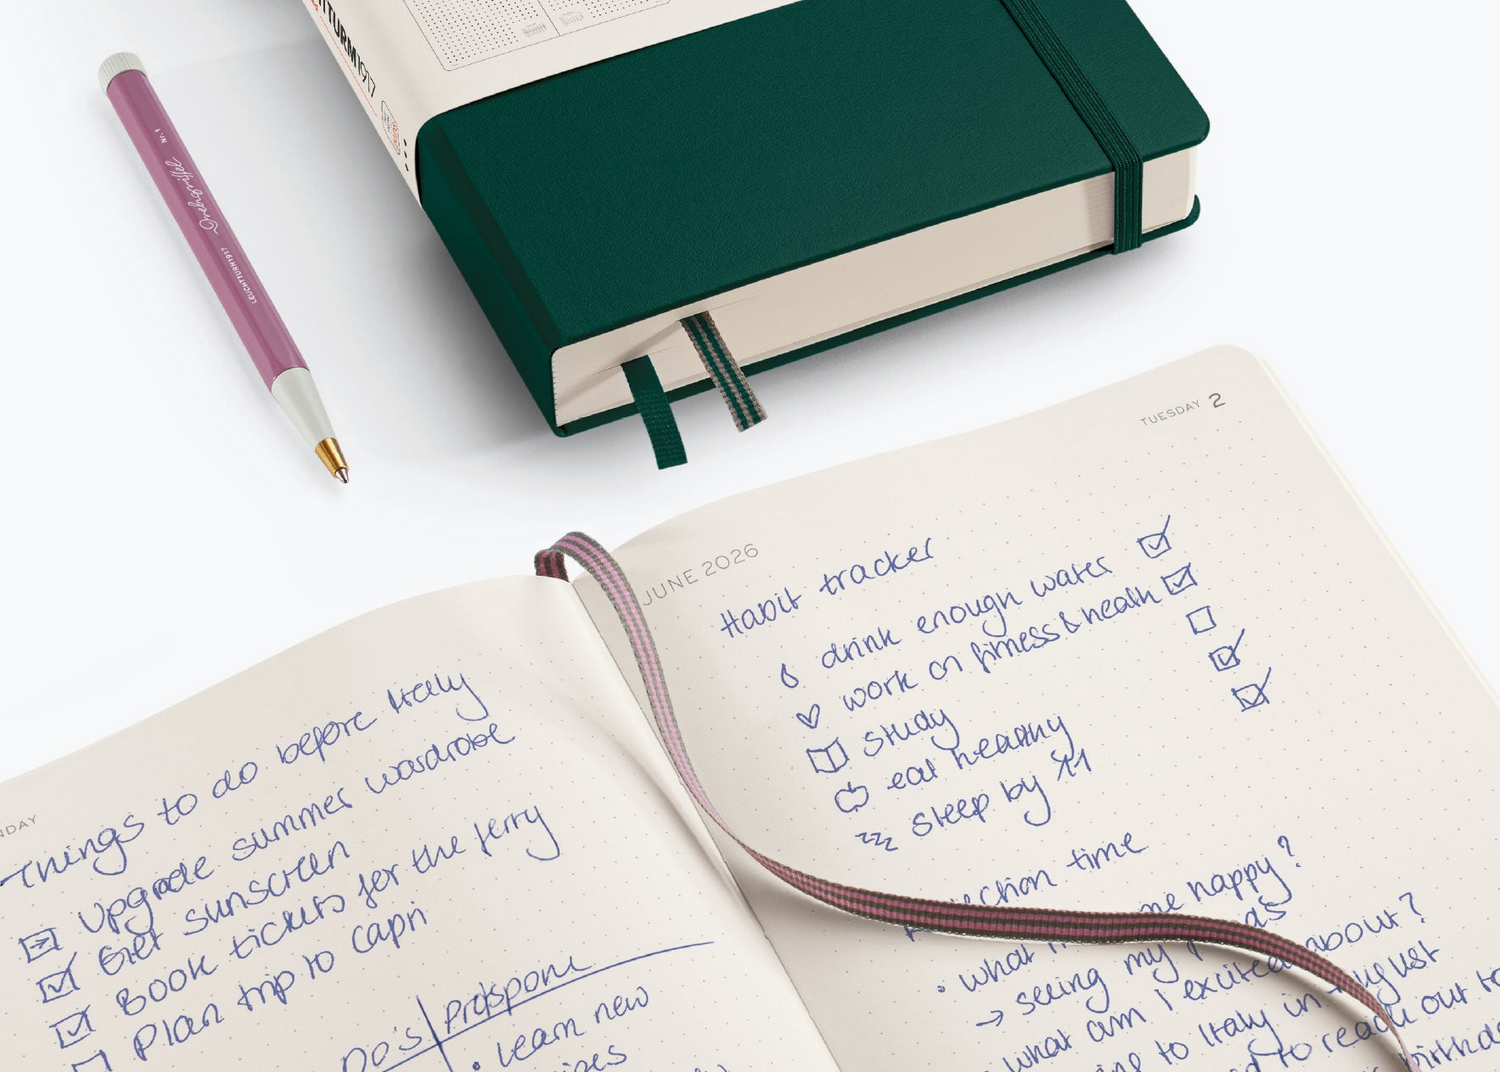 TTURM1917
Nr. 1
Drehgriffel
LEUCHTTURM1917
TUESDAY 2
JUNE 2026
Habit tracker
drink enough water
work on fitness & health
study
eat healthy
sleep by 11
time
me happy?
→ seeing my
what am I excited about?
to Italy in August
to reach out to
NDAY
Things to do before Italy
Upgrade summer wardrobe
Get sunscreen
Book tickets for the ferry
Plan trip to capri
DO's
postpone
• Learn new